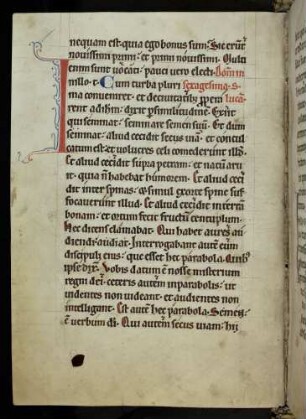 nequam est quia ego bonus sum. Sic erūt
nouissimi primi. et primi nouissimi. Multi
enim sunt uocati. pauci uero electi. Domi
In illo t. Cum turba pluri sexagesima. s.
ma conueniret. et de ciuitatib; ꝓpꝛe lucā.
rent ad ihm. dixit p similitudinē. Exiit
qui seminat. seminare semen suū. Et dum
seminat. aliud cecidit secus uiā. et concul
catum est. et uolucres celi comederunt illd.
Et aliud cecidit supra petram. et natū aru
it. quia n̄ habebat humorem. Et aliud ceci
dit inter spinas. et simul exorte spine suf
focauerunt illud. Et aliud cecidit in terrā
bonam. et ortum fecit fructū centuplum.
Hec dicens clamabat. Qui habet aures au
diendi. audiat. Interrogabant autē eum
discipuli eius. que esset hec parabola. Quib;
ipse dix̄. Vobis datum ē nosse misterium
regni dei. ceteris autēm in parabolis. ut
uidentes non uideant. et audientes non
intelligant. Est autē hec parabola. Semen
ē uerbum dī. Qui autēm secus uiam. hii